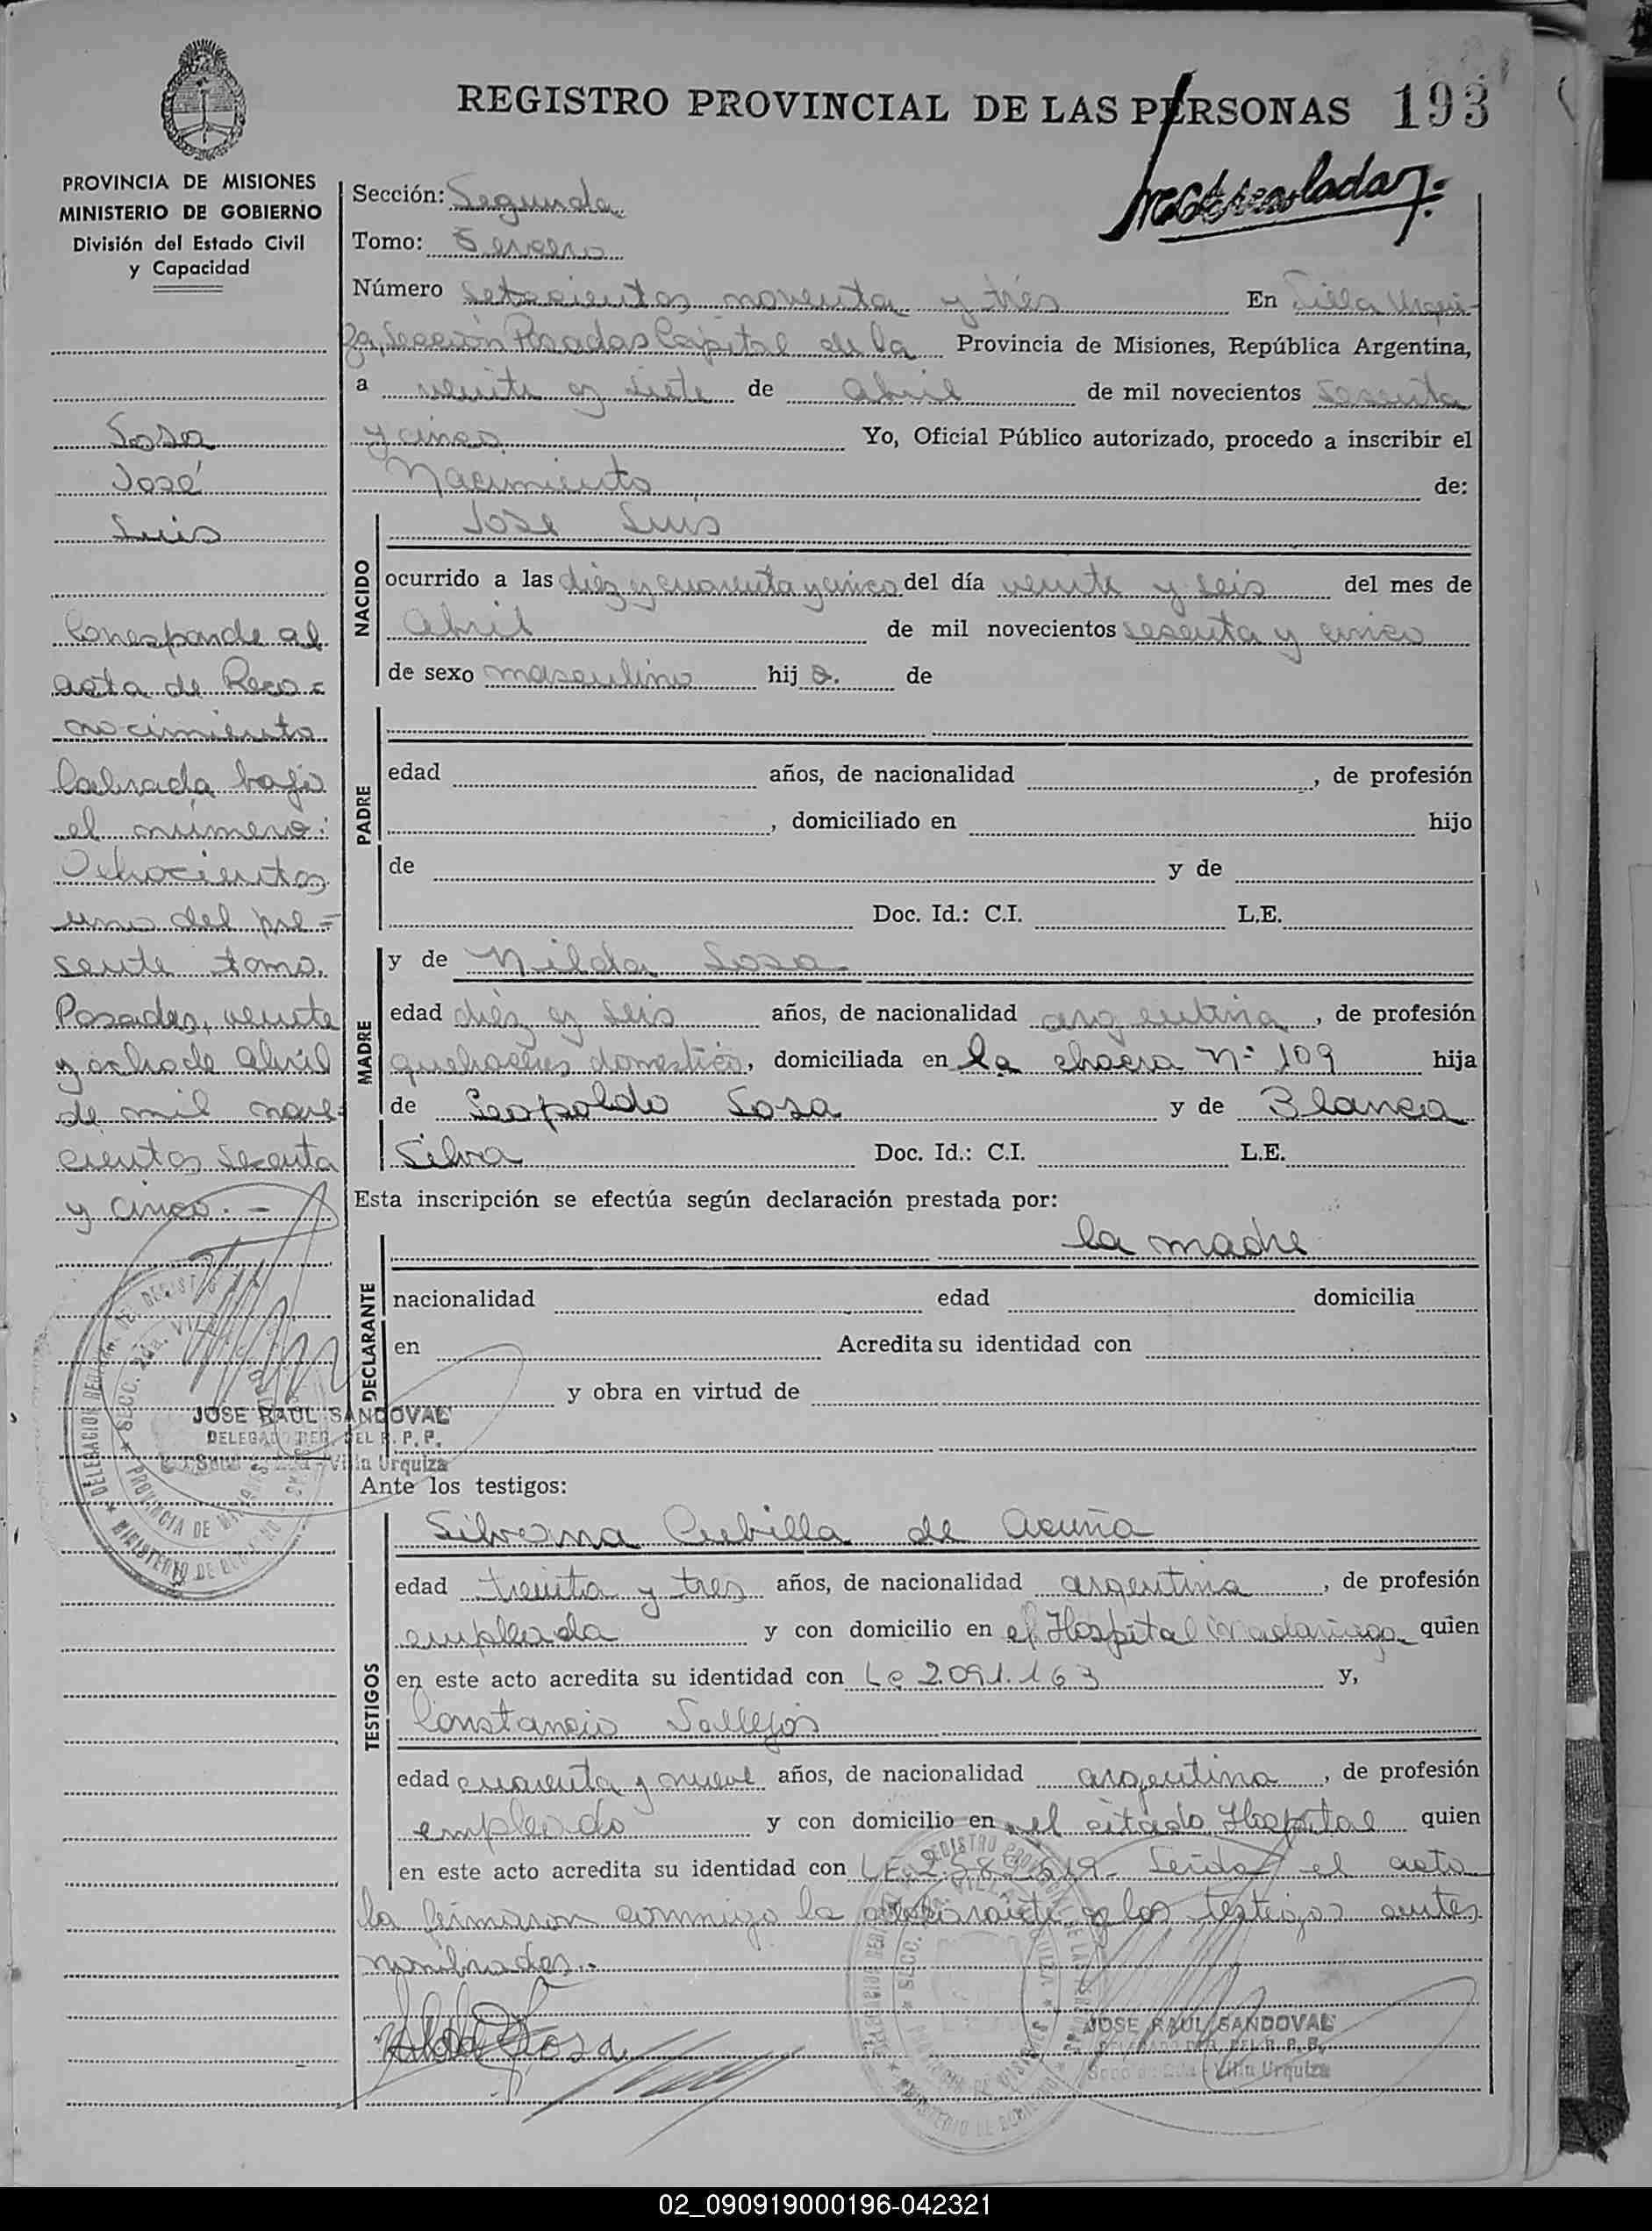 REGISTRO PROVINCIAL DE LAS PERSONAS 193
PROVINCIA DE MISIONES
MINISTERIO DE GOBIERNO
División del Estado Civil
y Capacidad
Sosa
José
Luis
Corresponde al
acta de Reco=
nocimiento
labrada bajo
el número:
Ochocientos
uno del pre=
sente tomo.
Posadas, veinte
y ocho de Abril
de mil nove=
cientos sesenta
y cinco.-
Sección: Segunda
Tomo: Tercero
Número setecientos noventa y tres En Villa Urqui-
za, Sección Posadas Capital de la Provincia de Misiones, República Argentina,
a veinte y siete de Abril de mil novecientos sesenta
y cinco Yo, Oficial Público autorizado, procedo a inscribir el
Nacimiento de:
NACIDO
José Luis
ocurrido a las diez y cuarenta y cinco del día veinte y seis del mes de
Abril de mil novecientos sesenta y cinco
de sexo masculino hij o. de
PADRE
edad años, de nacionalidad , de profesión
, domiciliado en hijo
de y de
Doc. Id.: C.I. L.E.
MADRE
y de Nilda Sosa
edad diez y seis años, de nacionalidad argentina, de profesión
quehaceres domestico, domiciliada en la chacra Nº 109 hija
de Leopoldo Sosa y de Blanca
Silva Doc. Id.: C.I. L.E.
Esta inscripción se efectúa según declaración prestada por:
DECLARANTE
la madre
nacionalidad edad domicilia
en Acredita su identidad con
y obra en virtud de
JOSE RAUL SANDOVAL
DELEGADO REG. DEL R. P. P.
Villa Urquiza
Ante los testigos:
TESTIGOS
Silverna Cubilla de Acuña
edad treinta y tres años, de nacionalidad argentina, de profesión
empleada y con domicilio en el Hospital Madariaga quien
en este acto acredita su identidad con Lc 2.091.163 y,
Constancio Vallejos
edad cuarenta y nueve años, de nacionalidad argentina, de profesión
empleado y con domicilio en el citado Hospital quien
en este acto acredita su identidad con LE Leida el acta
la firmaron conmigo la declarante y los testigos antes
nombrados.-
Nilda Sosa
JOSE RAUL SANDOVAL
DELEGADO REG. DEL R. P. P.
Villa Urquiza
02_090919000196-042321